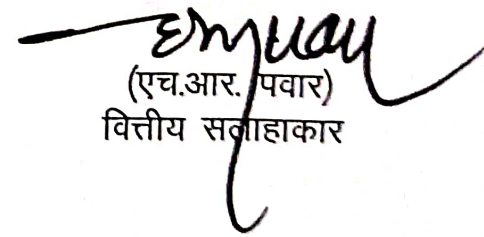 (एच.आर. पवार)
वित्तीय सलाहाकार